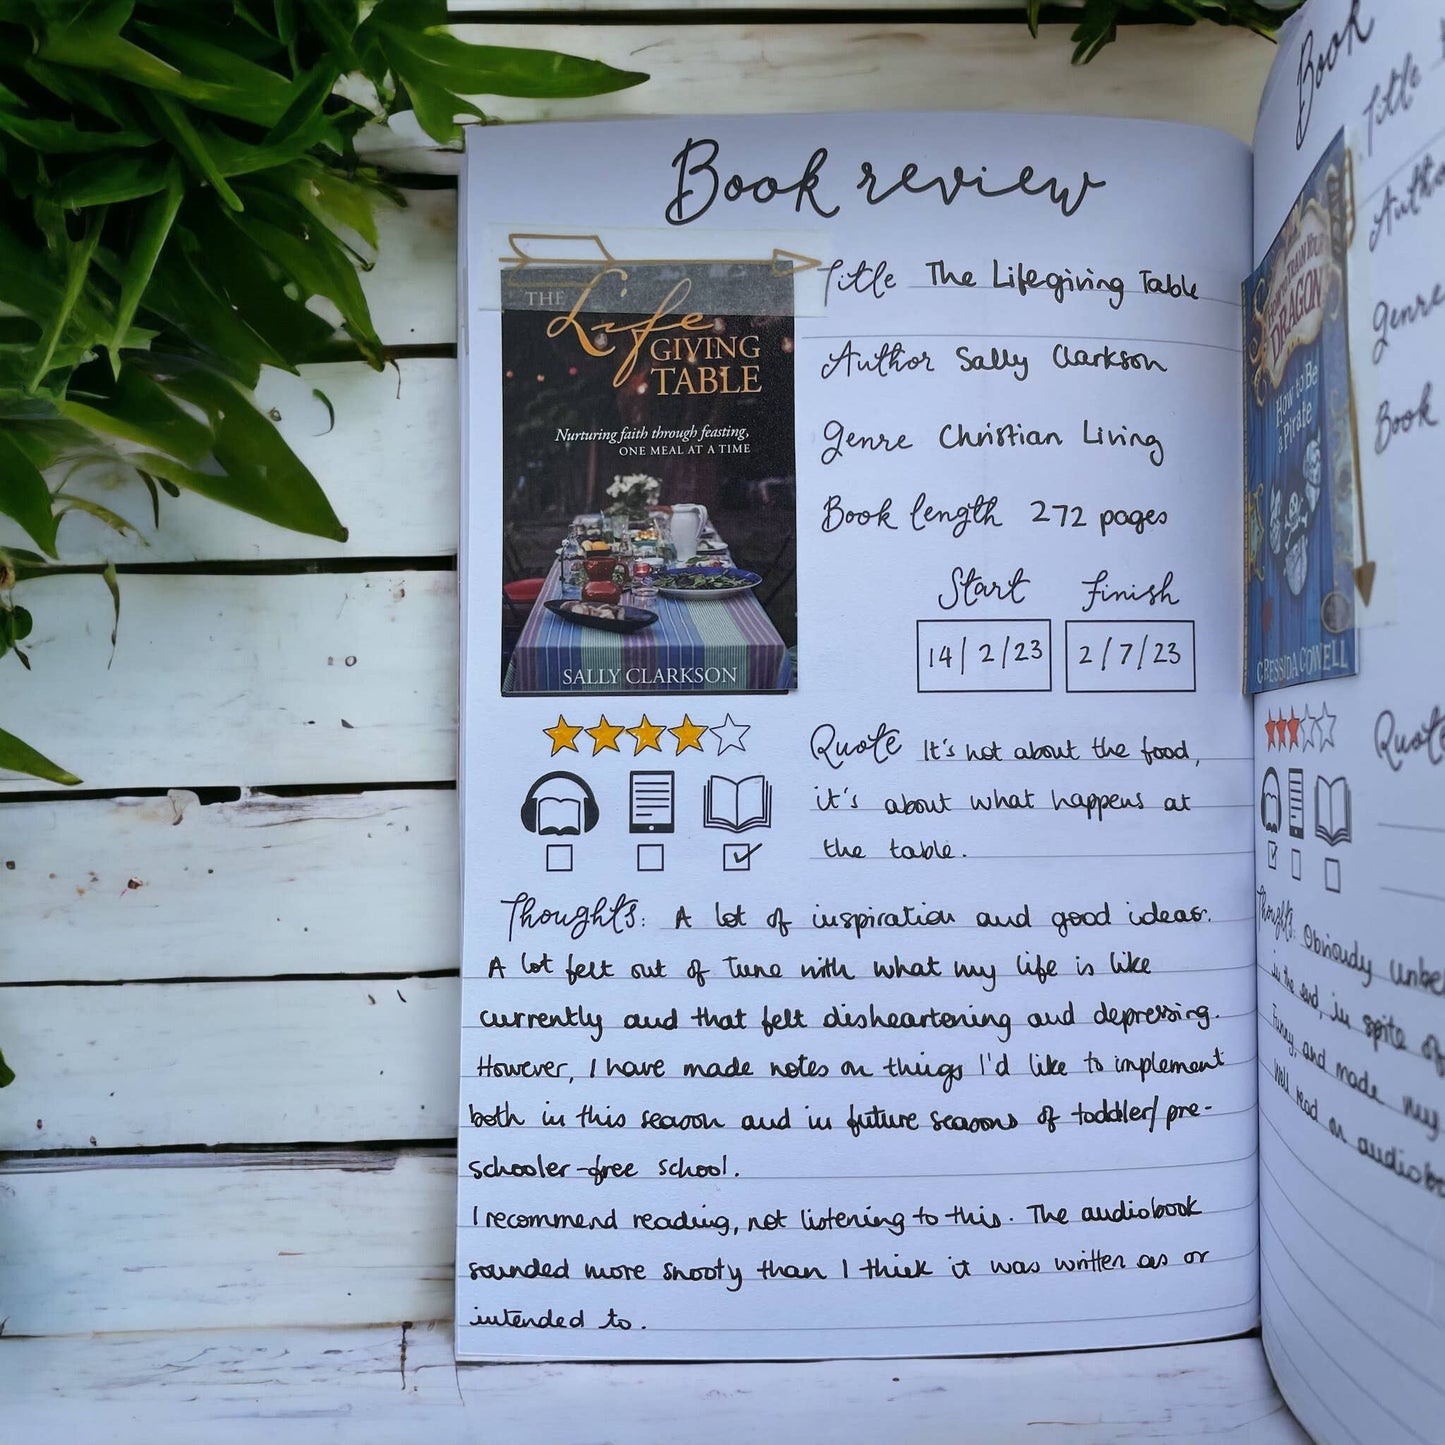 Book review
THE Life
GIVING
TABLE
Nurturing faith through feasting,
ONE MEAL AT A TIME
SALLY CLARKSON
Title The Lifegiving Table
Author Sally Clarkson
Genre Christian Living
Book length 272 pages
Start Finish
14/2/23 2/7/23
Quote It's not about the food,
it's about what happens at
the table.
Thoughts: A lot of inspiration and good ideas.
A lot felt out of tune with what my life is like
currently and that felt disheartening and depressing.
However, I have made notes on things I'd like to implement
both in this season and in future seasons of toddler/pre-
schooler-free school.
I recommend reading, not listening to this. The audiobook
sounded more snooty than I think it was written as or
intended to.
Book
Title
Genre
Book
TRAIN YOUR
DRAGON
How to Be
a Pirate
CRESSIDA COWELL
Quote
Thoughts: Obviously
in the end, in spite of
Funny, and made my
Well read on